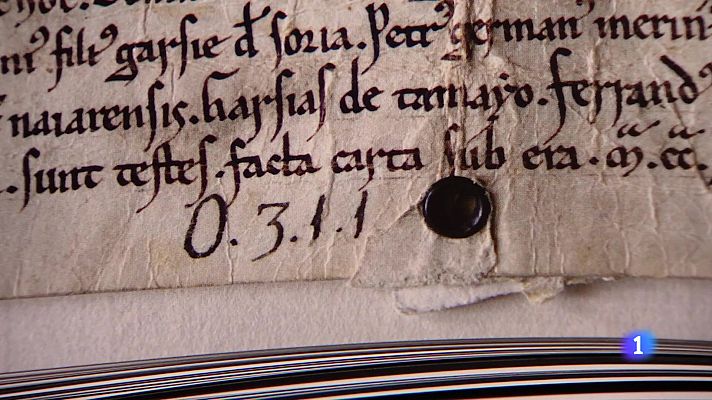 filiꝰ garsie d̄ soria. Petrꝰ germanꝰ merinꝰ
naiarensis. Garsias de tamayo. ferrandꝰ
. sunt testes. facta carta sub era. m̄. c̄c̄.
O. 3. 1. 1
1